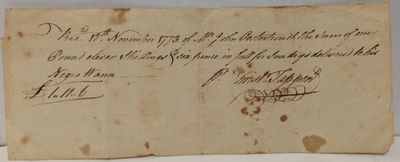 Rec.d 12th November 1773 of Mr. John the Sum of one
Pound eleven Shillings & six pence in full for Sundrys delivered to his
Negro
£1.11.6
P. Tappen